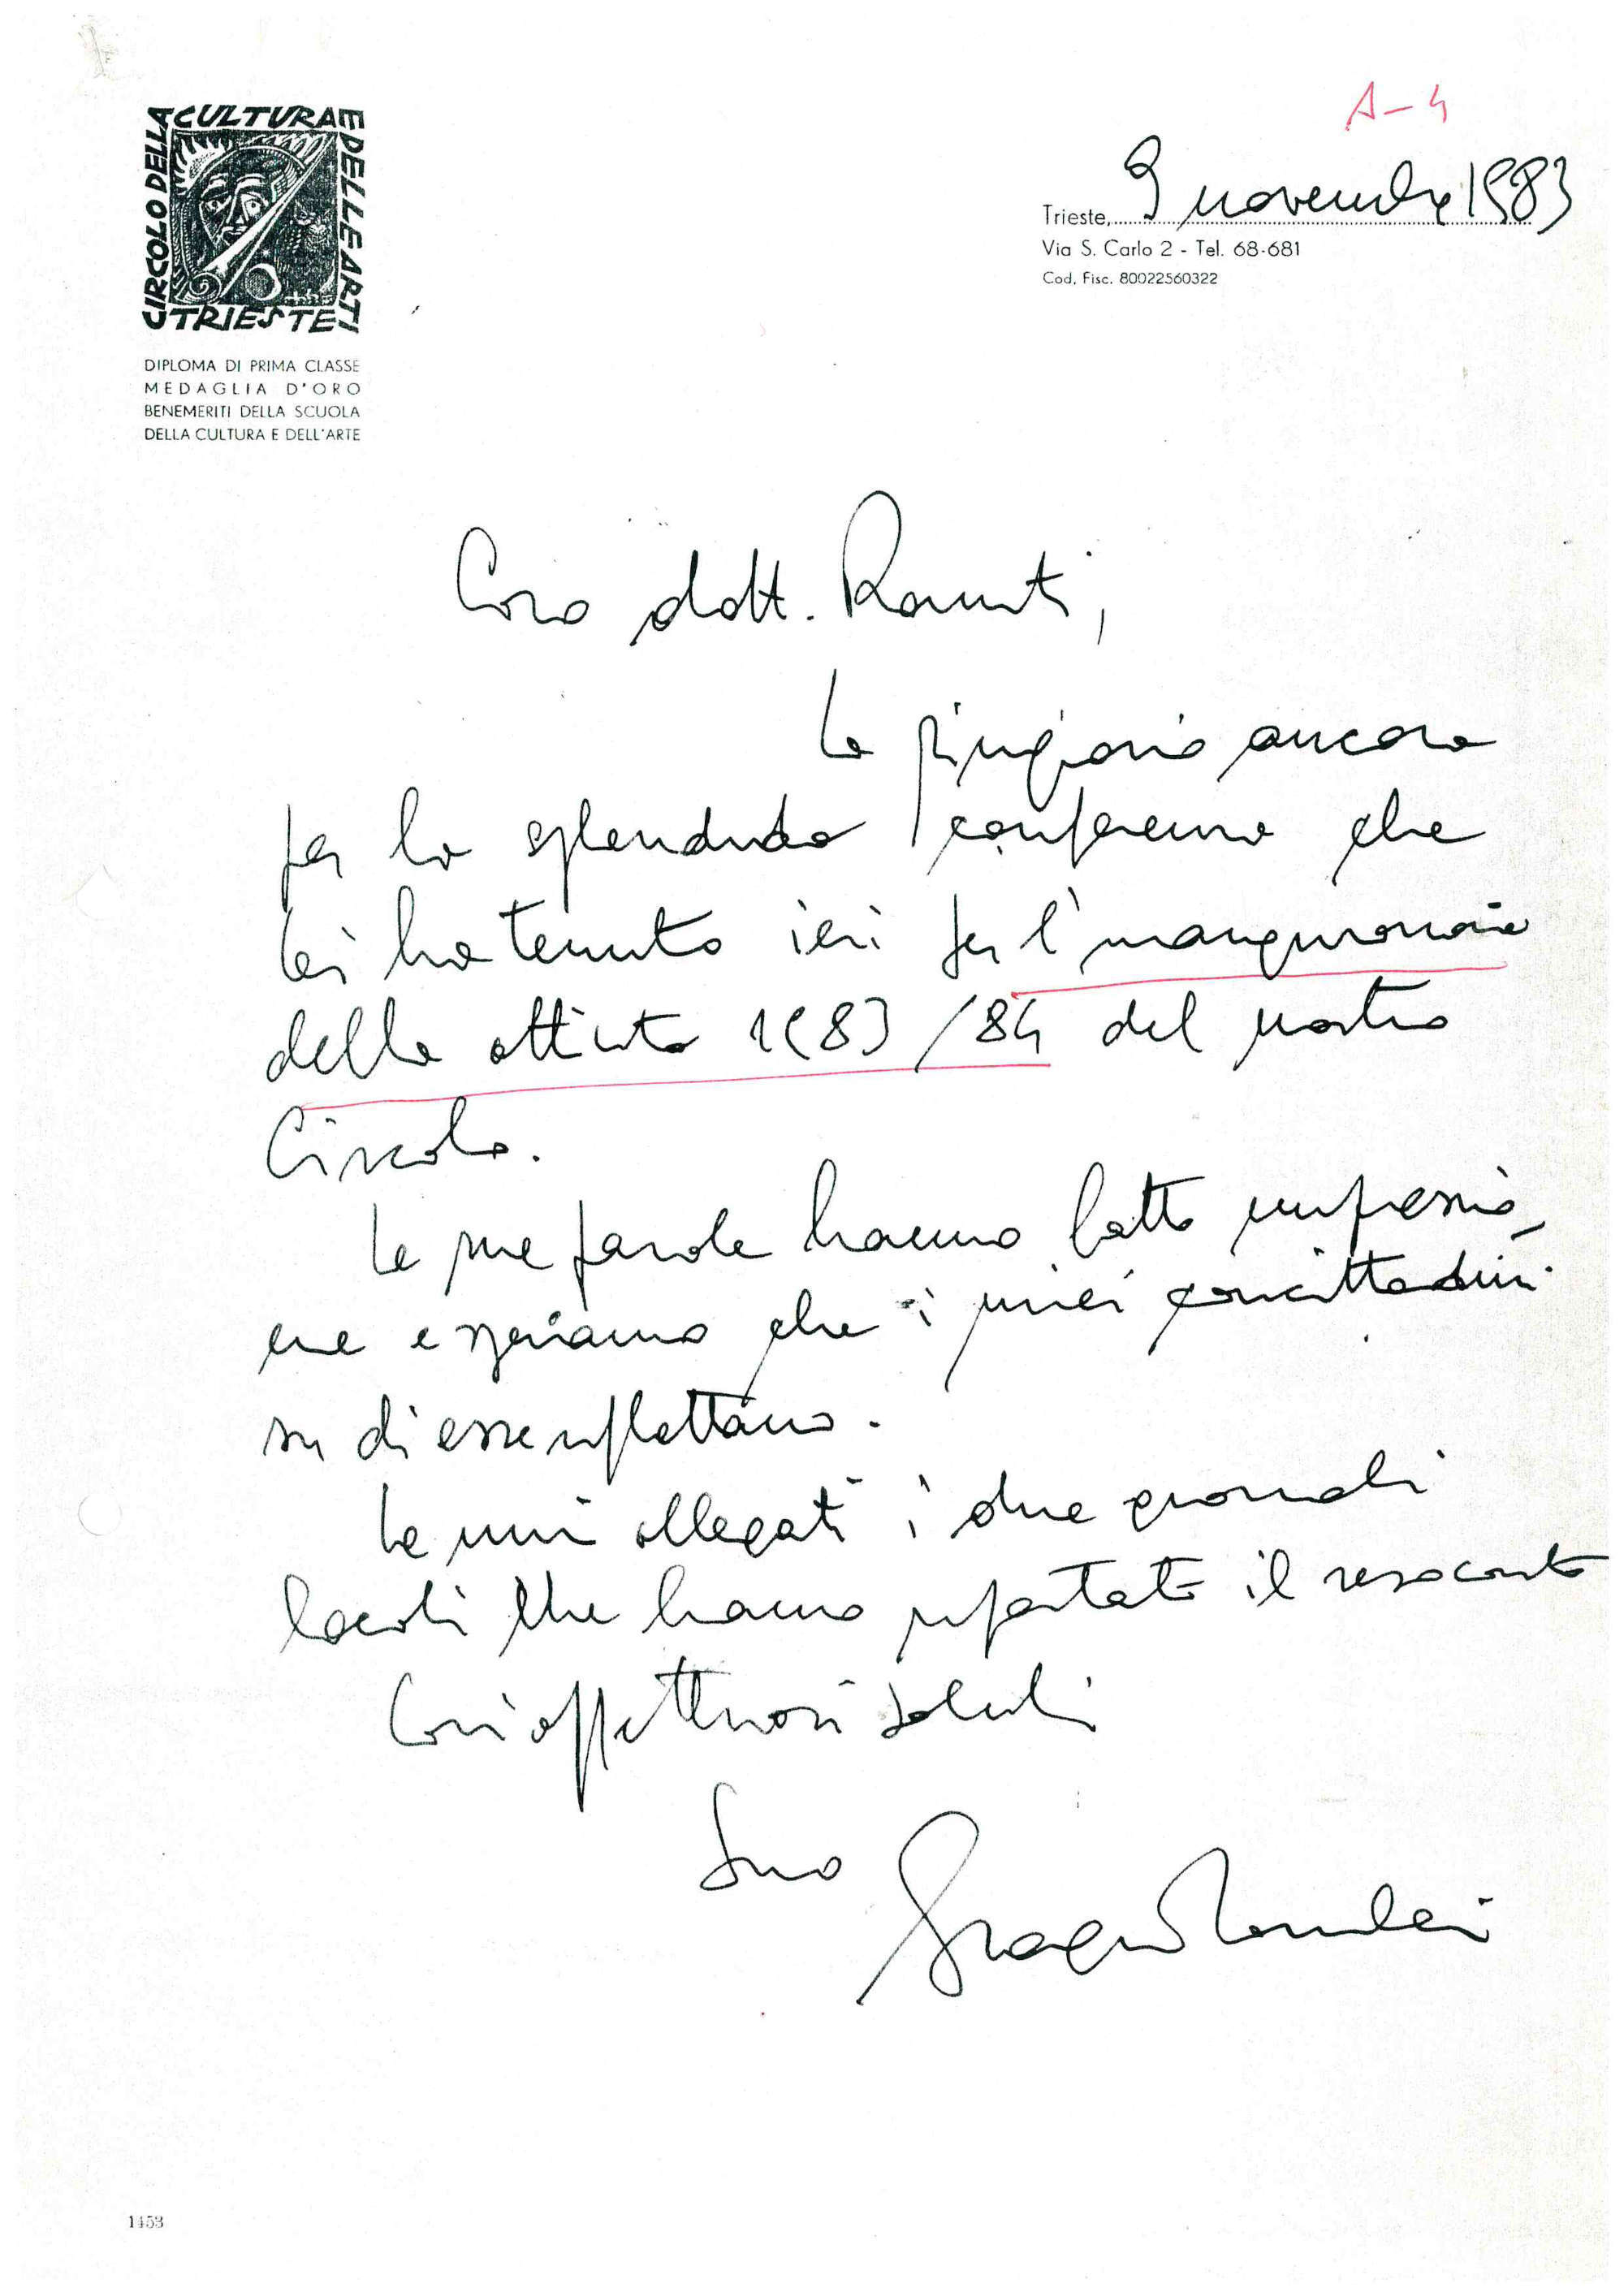 CIRCOLO DELLA CULTURA E DELLE ARTI
TRIESTE
DIPLOMA DI PRIMA CLASSE
MEDAGLIA D'ORO
BENEMERITI DELLA SCUOLA
DELLA CULTURA E DELL'ARTE
A-4
Trieste, 9 novembre 1983
Via S. Carlo 2 - Tel. 68-681
Cod. Fisc. 80022560322
Caro dott.
La ringrazio ancora
per la splendida conferenza che
lei ha tenuto ieri per l'inaugurazione
della attività 1983/84 del nostro
Circolo.
Le sue parole hanno fatto impressio-
ne e speriamo che i miei concittadini
su di esse riflettano.
Le allegati i due giornali
locali che hanno riportato il resoconto
Con affettuosi saluti
Suo
1453